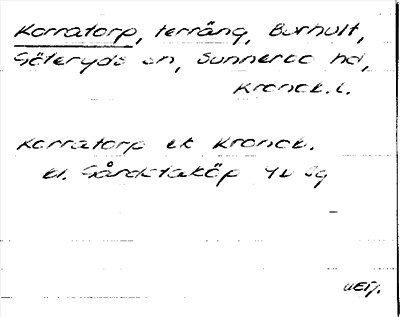 Korratorp, terräng, Burhult,
Göteryds sn, Sunnerbo hd,
Kronob. l.
Korratorp ek Kronob.
bl. Gårdstaköp 4b Sg